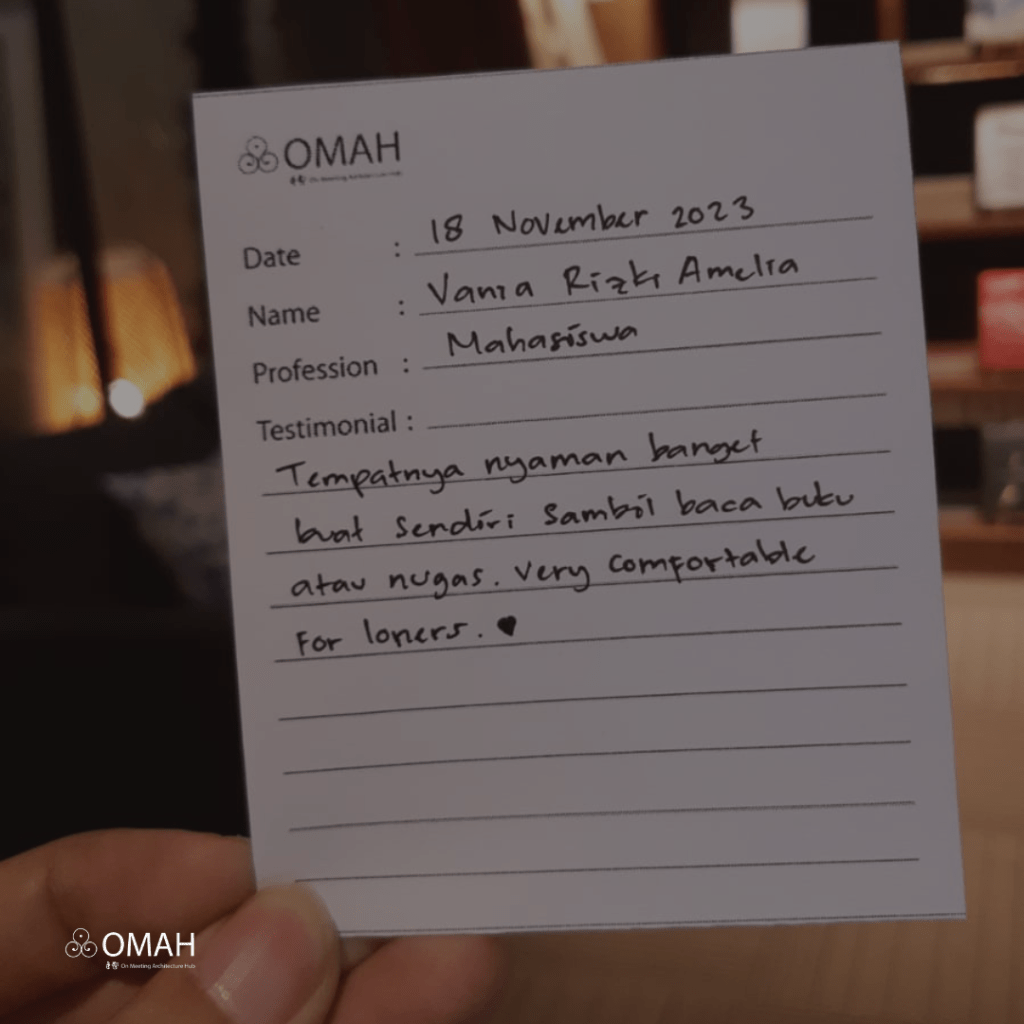 OMAH
On Meeting Architecture Hub
Date : 18 November 2023
Name : Vania Rizki Amelia
Profession : Mahasiswa
Testimonial :
Tempatnya nyaman banget
buat sendiri sambil baca buku
atau nugas. Very comfortable
for loners. ♥
OMAH
On Meeting Architecture Hub